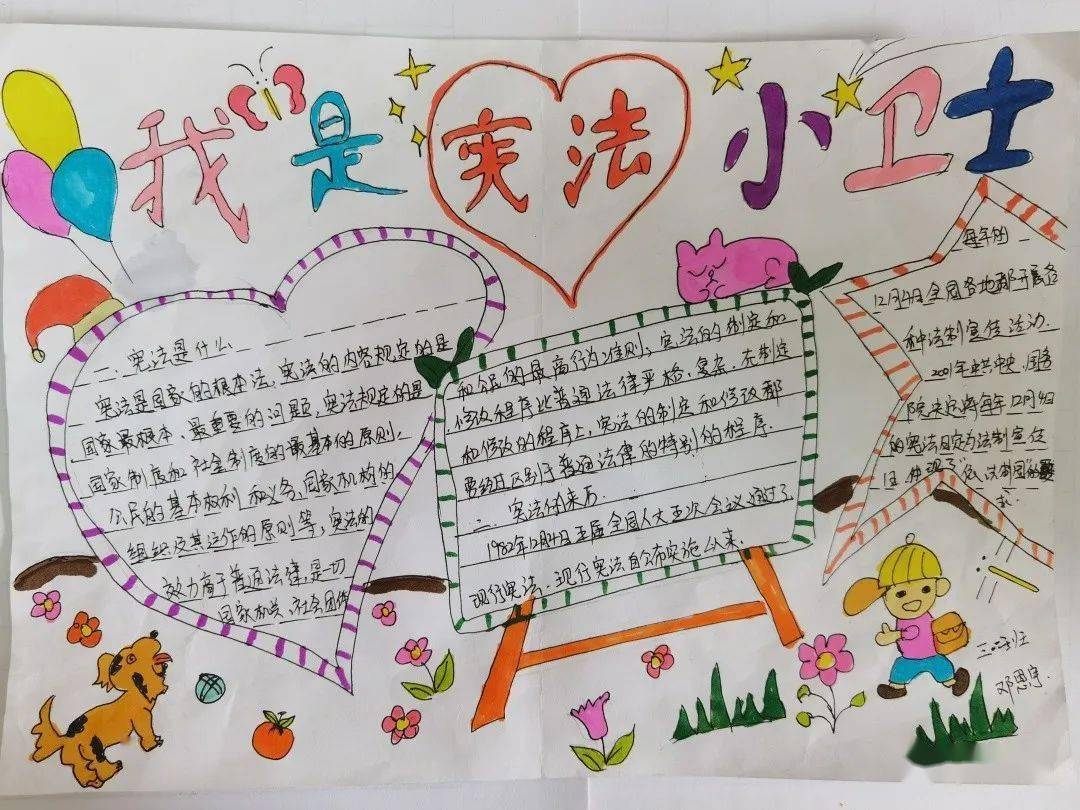 我是宪法小卫士
一、宪法是什么
宪法是国家的根本法，宪法的内容规定的是
国家最根本、最重要的问题，宪法规定的是
国家制度和社会制度的最基本的原则。
公民的基本权利和义务，国家机构的
组织及其运作的原则等，宪法的
效力高于普通法律，是一切
国家机关、社会团体
和公民的最高行为准则；宪法的制定和
修改程序比普通法律严格、复杂，在制定
和修改的程序上，宪法的制定和修改都
要经过区别于普通法律的特别的程序
二、宪法的来历
1982年12月4日五届全国人大五次会议通过了
现行宪法，现行宪法自公布实施以来
每年的
12月4日全国各地都开展各
种法制宣传活动.
2001年中共中央、国务
院决定将每年12月4日
的宪法日定为法制宣传
日
三
班
邓思宇